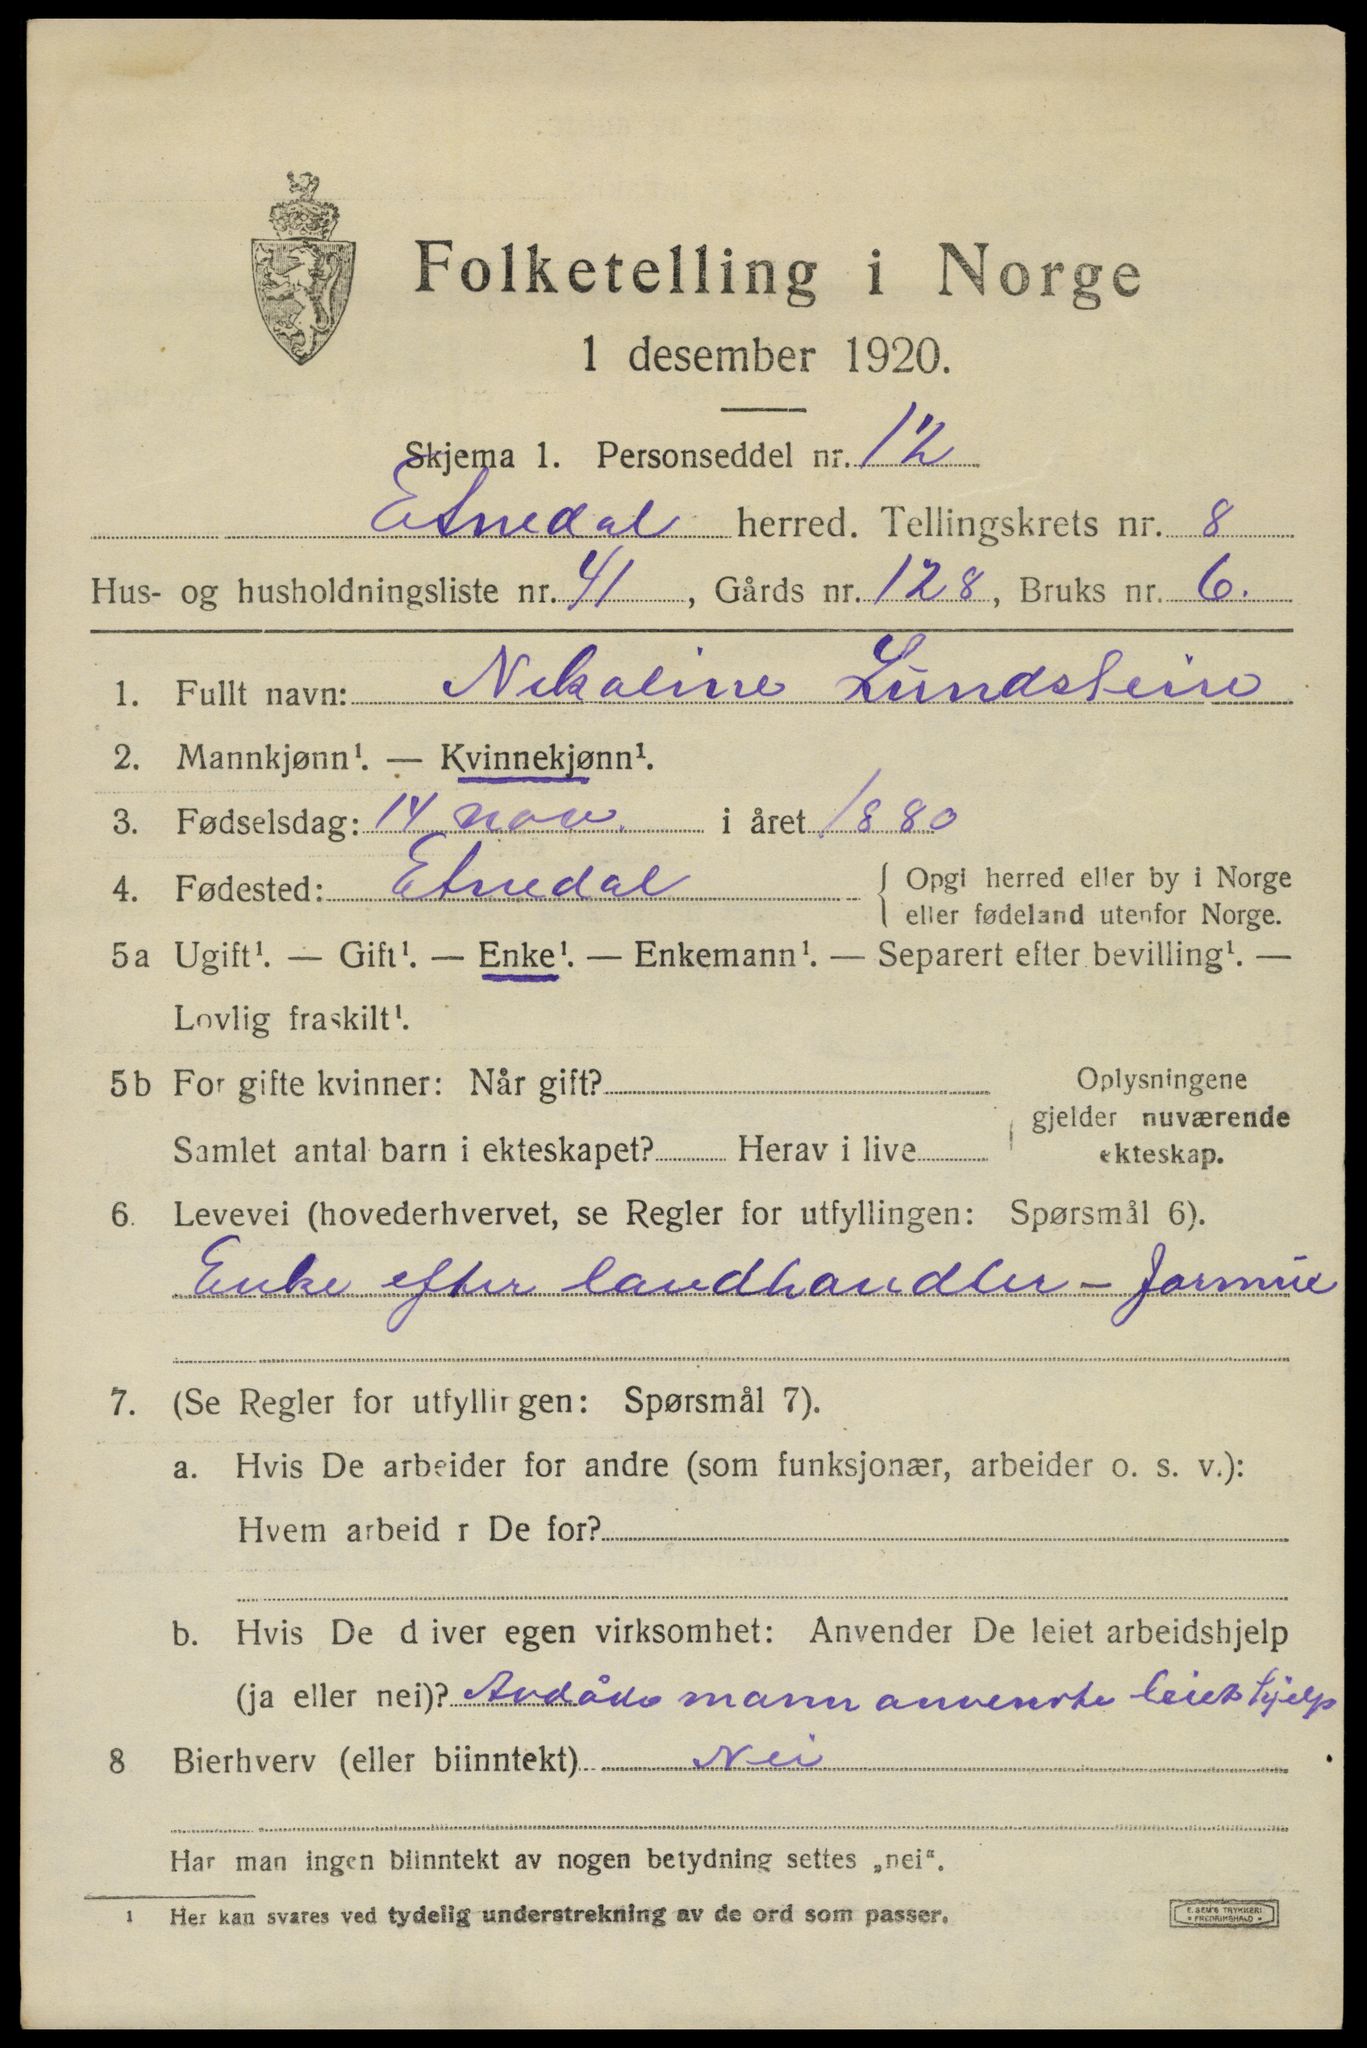 Folketelling i Norge
1 desember 1920.
Skjema 1. Personseddel nr. 12
Etnedal herred. Tellingskrets nr. 8
Hus- og husholdningsliste nr. 41, Gårds nr. 128, Bruks nr. 6.
1. Fullt navn: Nikoline Lundstein
2. Mannkjønn¹. — Kvinnekjønn¹.
3. Fødselsdag: 14 nov. i året 1880
4. Fødested: Etnedal { Opgi herred eller by i Norge
eller fødeland utenfor Norge.
5a Ugift¹. — Gift¹. — Enke¹. — Enkemann¹. — Separert efter bevilling¹. —
Lovlig fraskilt¹.
5b For gifte kvinner: Når gift? Oplysningene
gjelder nuværende
Samlet antal barn i ekteskapet? Herav i live ekteskap.
6. Levevei (hovederhvervet, se Regler for utfyllingen: Spørsmål 6).
Enke efter landhandler – formue
7. (Se Regler for utfyllingen: Spørsmål 7).
a. Hvis De arbeider for andre (som funksjonær, arbeider o. s. v.):
Hvem arbeid r De for?
b. Hvis De d iver egen virksomhet: Anvender De leiet arbeidshjelp
(ja eller nei)? Avdøde mann anvendte leiet hjelp
8 Bierhverv (eller biinntekt) Nei
Har man ingen biinntekt av nogen betydning settes „nei“.
1 Her kan svares ved tydelig understrekning av de ord som passer.
E. SEM'S TRYKKERI
FREDRIKSHALD